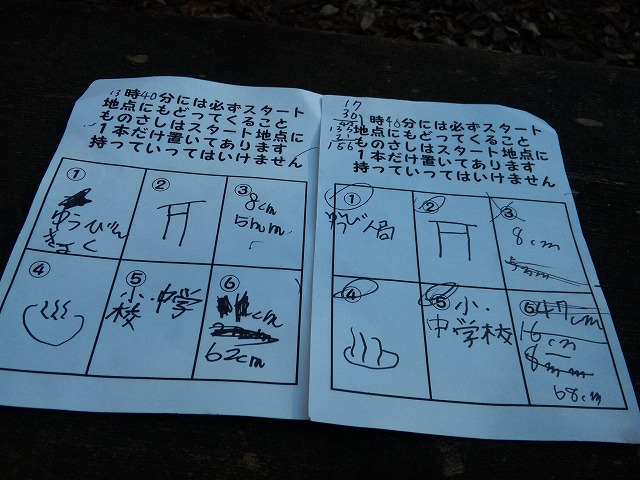 13時40分には必ずスタート
地点にもどってくること
ものさしはスタート地点に
1本だけ置いてあります
持っていってはいけません
①
ゆうびん
きょく
②
③
8cm
5mm
④
⑤
小・中学
校
⑥
cm
62cm
17
30
時40分には必ずスタート
地点にもどってくること
ものさしはスタート地点に
1本だけ置いてあります
持っていってはいけません
①
ゆうびん局
②
③
8cm
5mm
④
⑤
小・
中学校
⑥
47cm
16cm
8mm
68cm